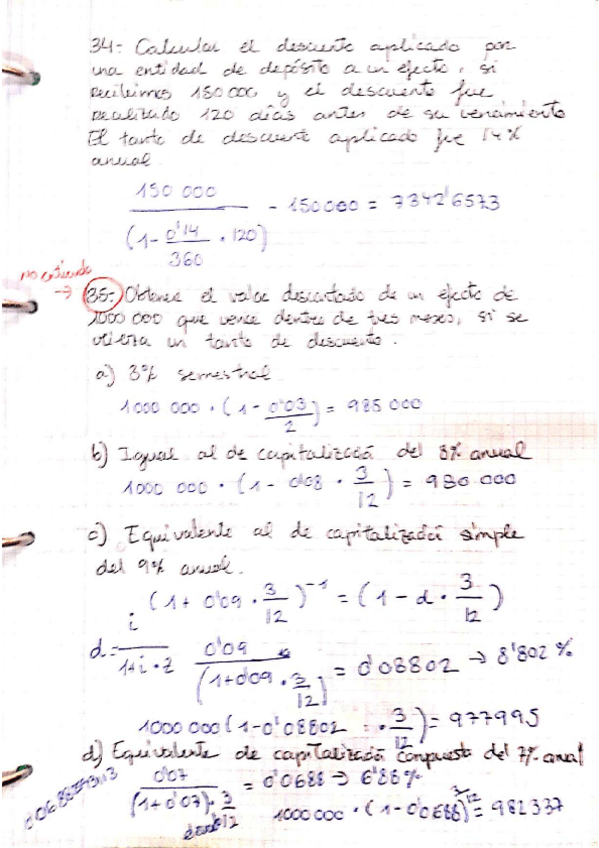 34- Calcular el descuento aplicado por
una entidad de depósito a un efecto, si
recibimos 150 000 y el descuento fue
realizado 120 días antes de su vencimiento
El tanto de descuento aplicado fue 14%
anual
150 000 / (1 - 0'14/360 · 120) - 150000 = 7342'6573
no entiendo
→ 35- Obtener el valor descontado de un efecto de
1000 000 que vence dentro de tres meses, si se
utiliza un tanto de descuento.
a) 3% semestral
1000 000 · (1 - 0'03/2) = 985 000
b) Igual al de capitalización del 8% anual
1000 000 · (1 - 0'08 · 3/12) = 980 000
c) Equivalente al de capitalización simple
del 9% anual.
(1 + 0'09 · 3/12)^-1 = (1 - d · 3/12)
d = i / 1+i·z 0'09 / (1+0'09 · 3/12) = 0'08802 → 8'802 %
1000 000 (1 - 0'08802 · 3/12) = 977995
d) Equivalente de capitalización compuesta del 7% anual
0'07 / (1+0'07) · 3/12 = 0'0688 → 6'88%
1000 000 · (1 - 0'0688)^3/12 = 982337